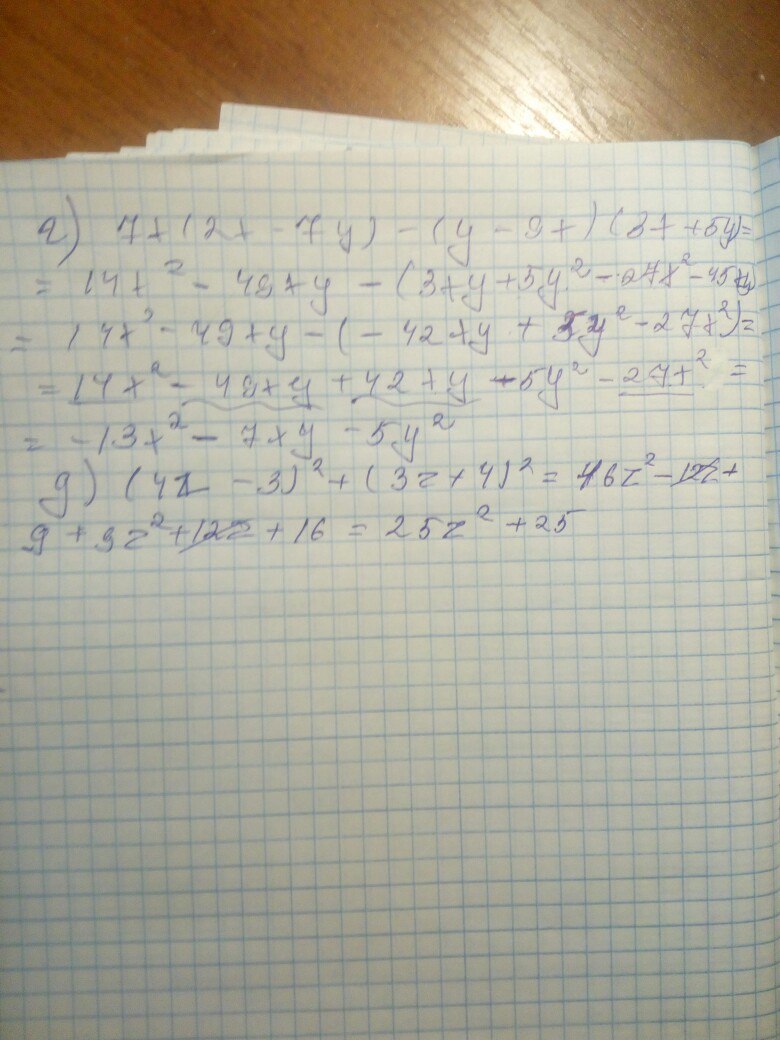 г) 7x(2x - 7y) - (y - 9x)(3x + 5y) =
= 14x² - 49xy - (3xy + 5y² - 27x² - 45xy
= 14x² - 49xy - (-42xy + 5y² - 27x²) =
= 14x² - 49xy + 42xy - 5y² - 27x² =
= -13x² - 7xy - 5y²
д) (4z - 3)² + (3z + 4)² = 16z² - 12z +
9 + 9z² + 12z + 16 = 25z² + 25